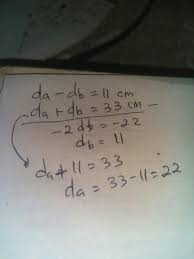 da - db = 11 cm
da + db = 33 cm -
-2 db = -22
db = 11
da + 11 = 33
da = 33 - 11 = 22